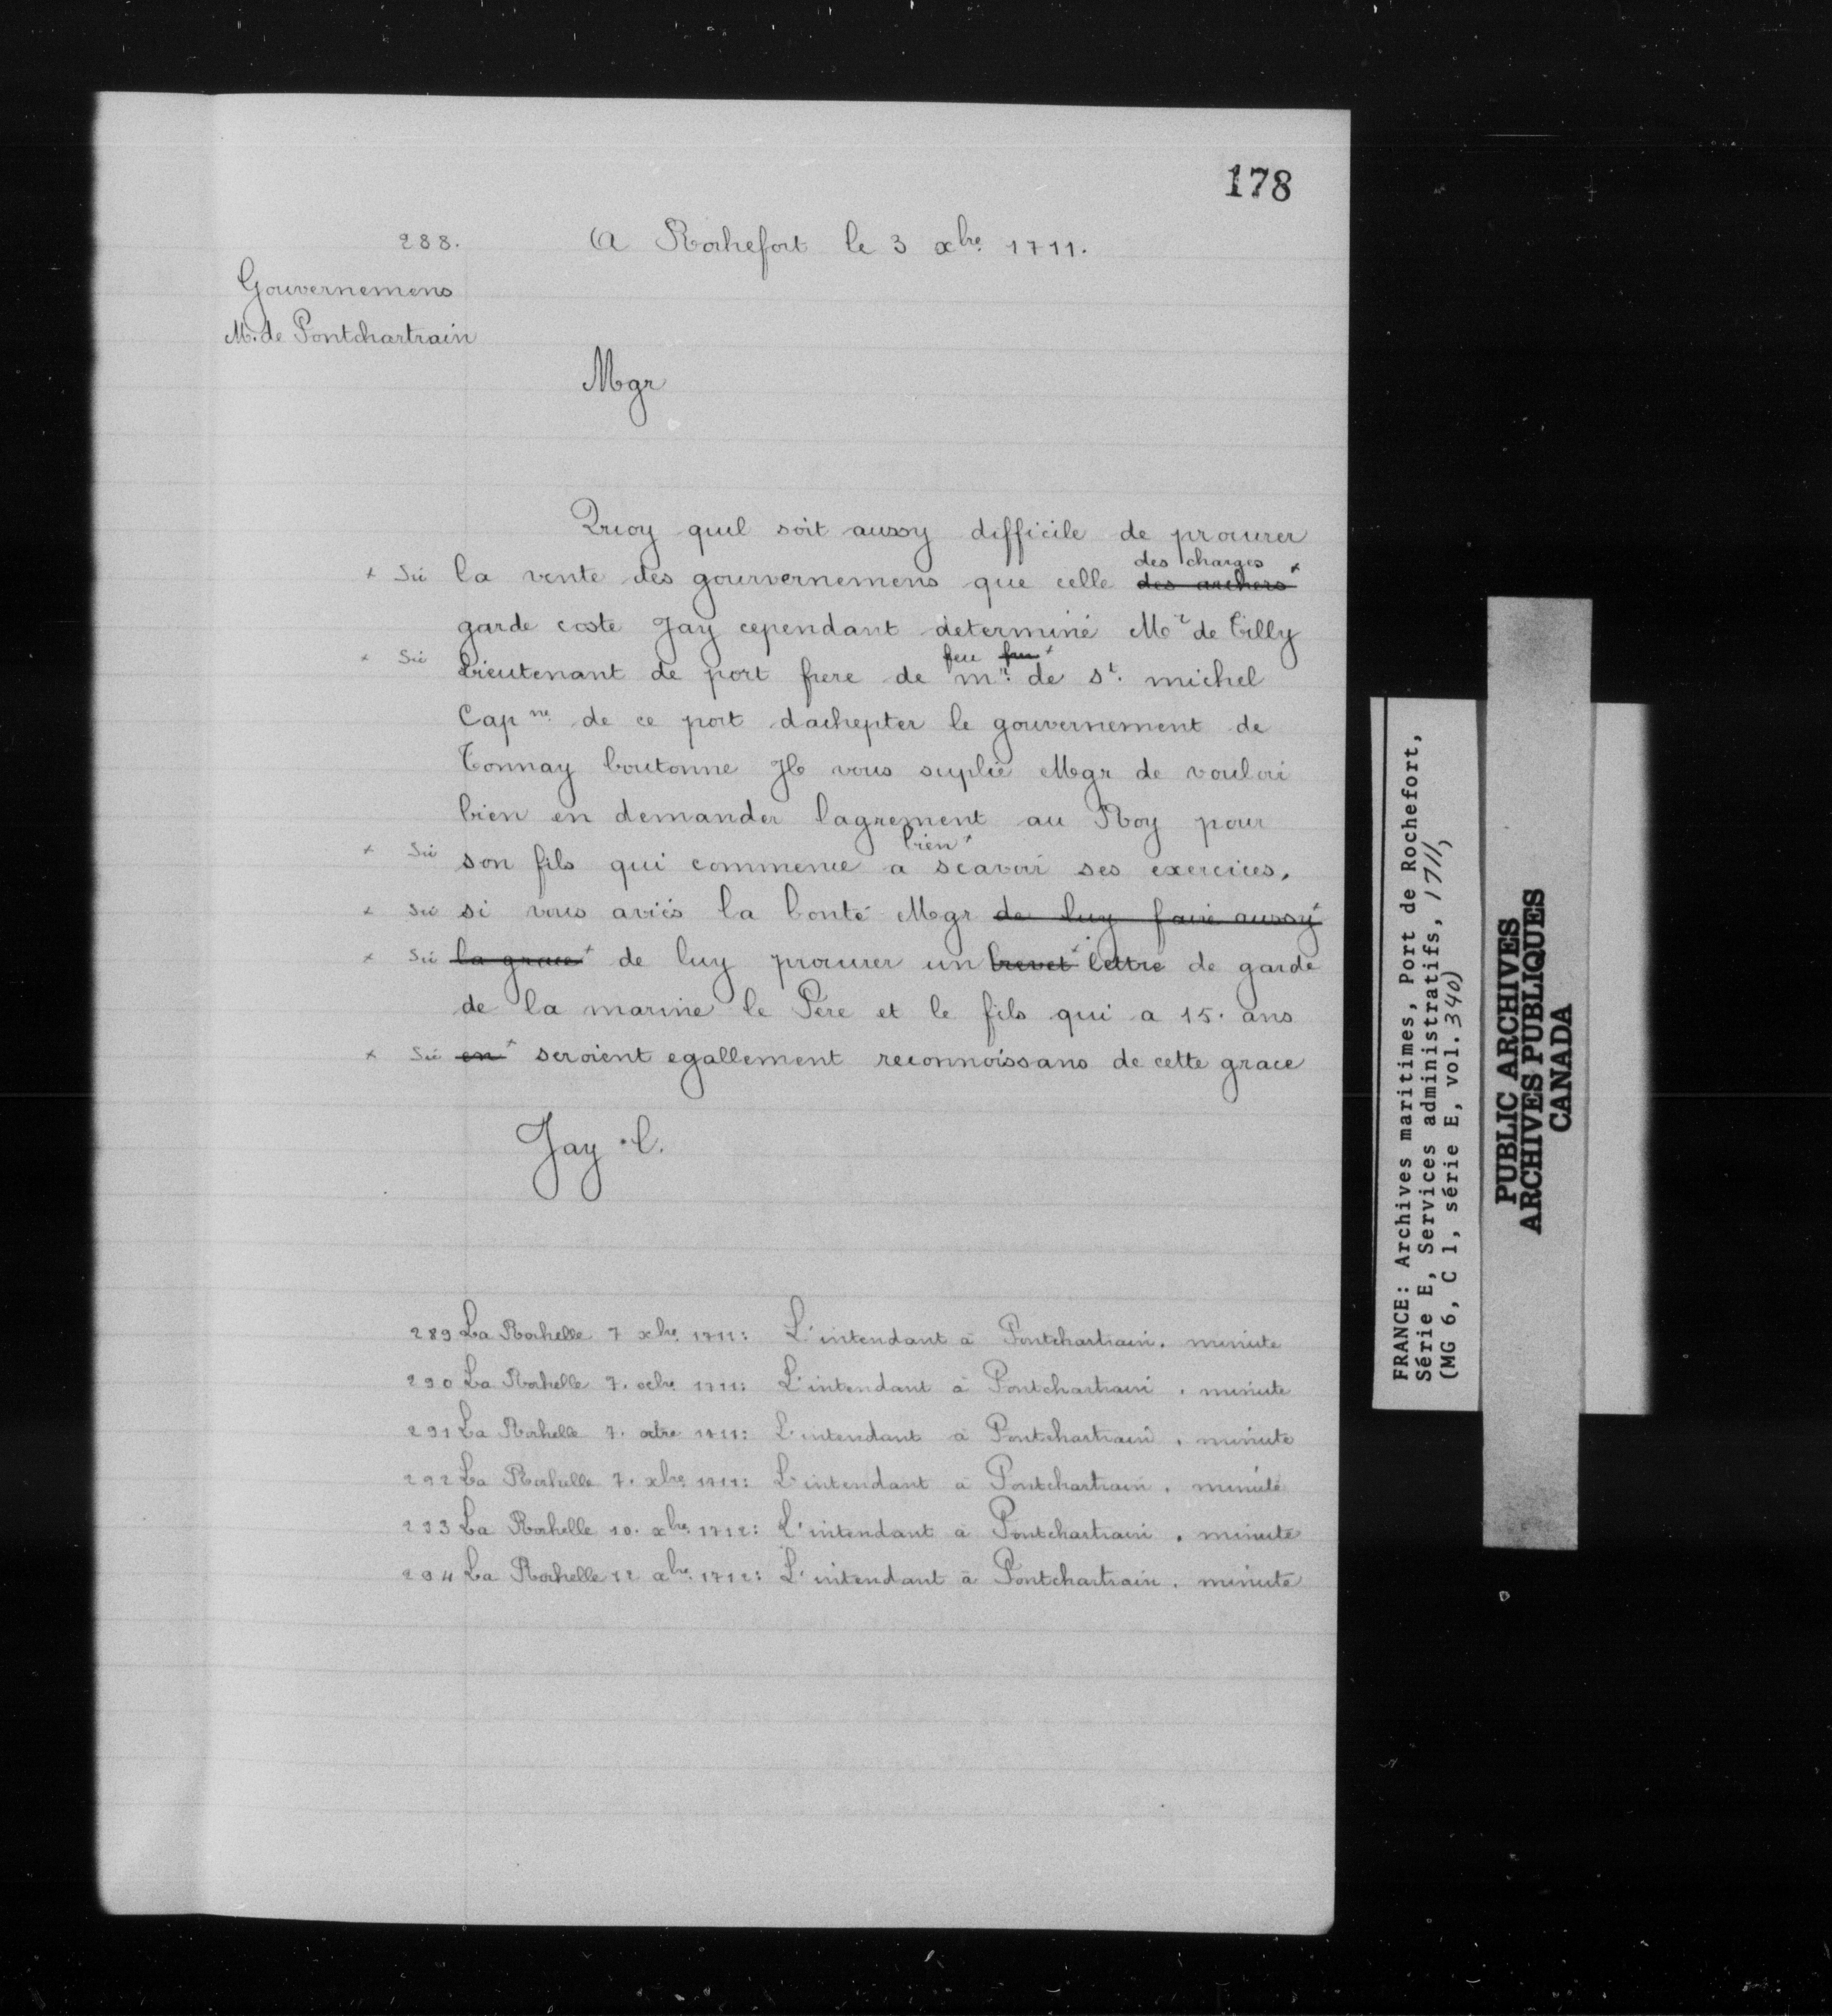 178
288. A Rochefort le 3 xbre 1711.
Gouvernemens
M. de Pontchartrain
Mgr
Quoy quil soit aussy difficile de procurer
des charges x
x Sic la vente des gourvernemens que celle des archers
garde coste Jay cependant determiné Mr de Tilly
feu feu x
x Sic Lieutenant de port frere de mr. de st. michel
Capne de ce port dachepter le gouvernement de
Tonnay boutonne Il vous suplie Mgr de vouloir
bien en demander lagrement au Roy pour
bien x
x Sic son fils qui commence a scavoir ses exercices,
x Sic si vous aviés la bonté Mgr de luy faire aussy
x Sic la grace x de luy procurer un brevet x lettre de garde
de la marine le Père et le fils qui a 15. ans
x Sic en x seroient egallement reconnoissans de cette grace
Jay .l.
289 La Rochelle 7 xbre 1711: L'intendant à Pontchartrain. minute
290 La Rochelle 7. octre 1711: L'intendant à Pontchartrain. minute
291 La Rochelle 7. octre 1711: L'intendant à Pontchartrain. minute
292 La Rochelle 7. xbre 1711: L'intendant à Pontchartrain. minute
293 La Rochelle 10. xbre 1712: L'intendant à Pontchartrain. minute
294 La Rochelle 12 xbre 1712: L'intendant à Pontchartrain. minute
FRANCE: Archives maritimes, Port de Rochefort,
Série E, Services administratifs, 1711,
(MG 6, C 1, série E, vol. 340)
PUBLIC ARCHIVES
ARCHIVES PUBLIQUES
CANADA